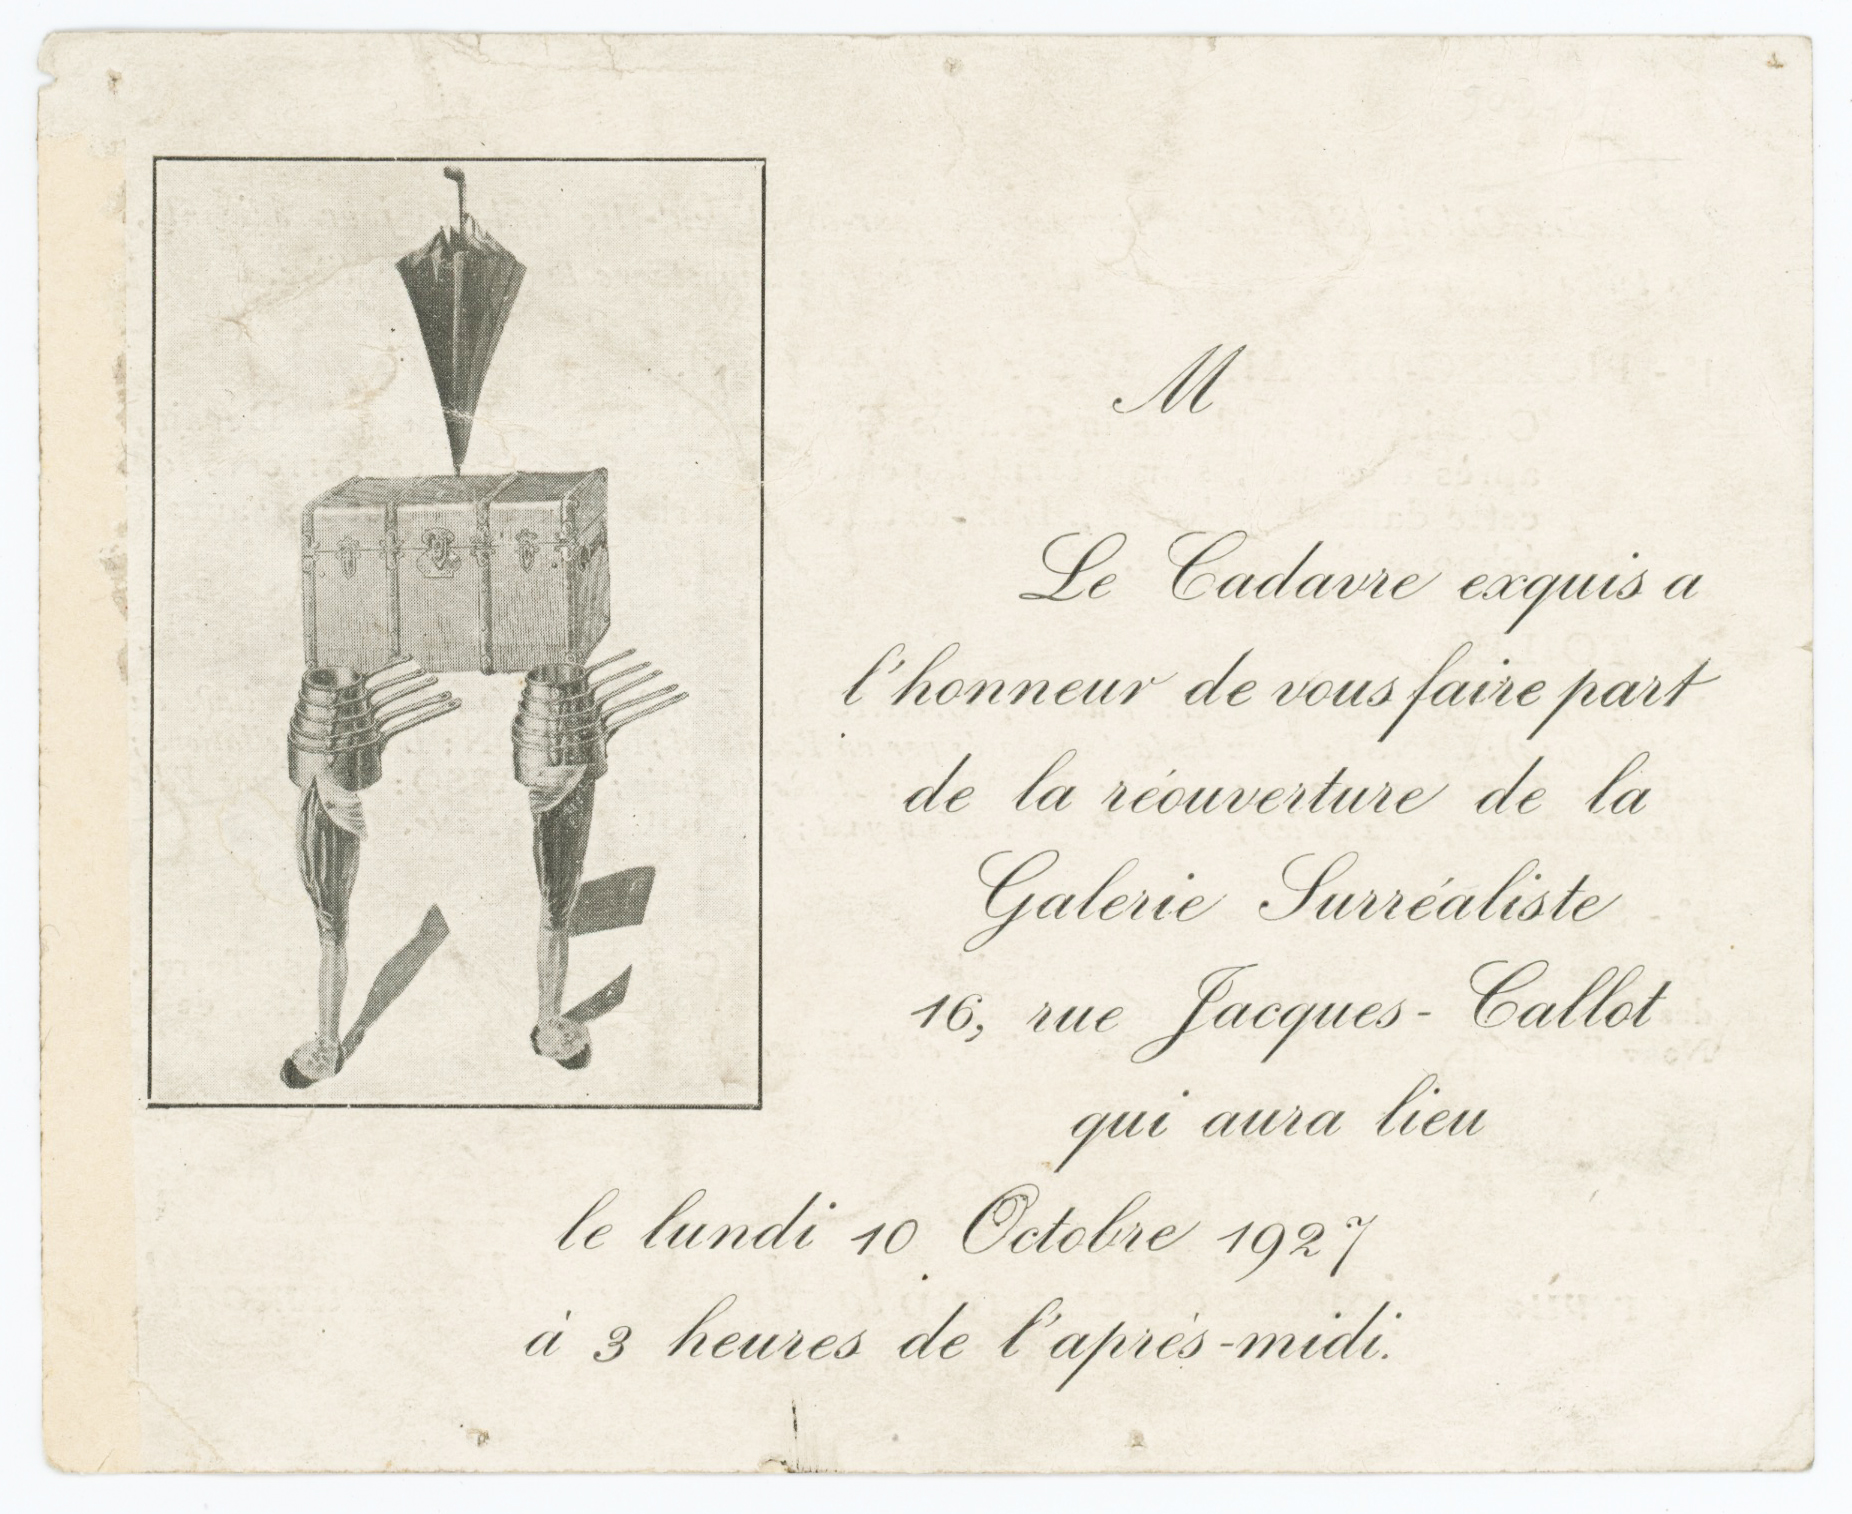 M
Le Cadavre exquis a
l'honneur de vous faire part
de la réouverture de la
Galerie Surréaliste
16, rue Jacques-Callot
qui aura lieu
le lundi 10 Octobre 1927
à 3 heures de l'après-midi.